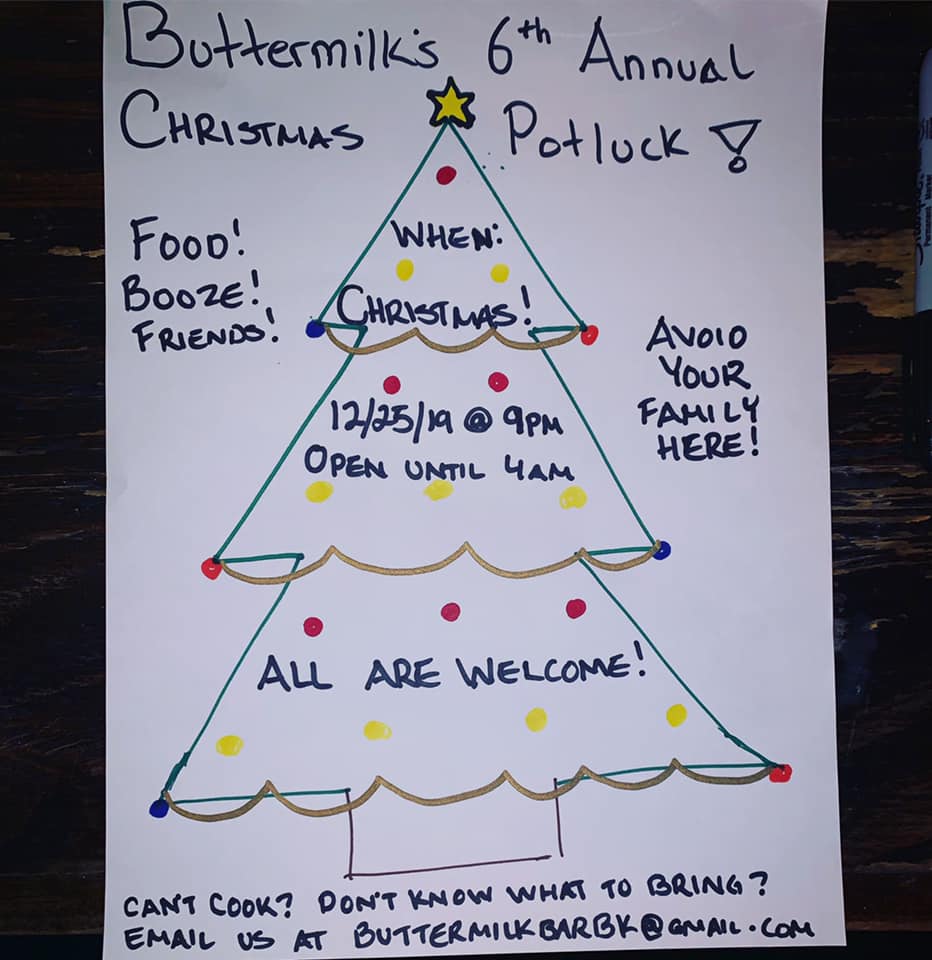 Buttermilk's 6th Annual
Christmas Potluck!
Food!
Booze!
Friends!
When:
Christmas!
12/25/19 @ 9pm
Open until 4am
Avoid
your
family
here!
All are welcome!
Can't cook? Don't know what to bring?
Email us at buttermilkbarbk@gmail.com